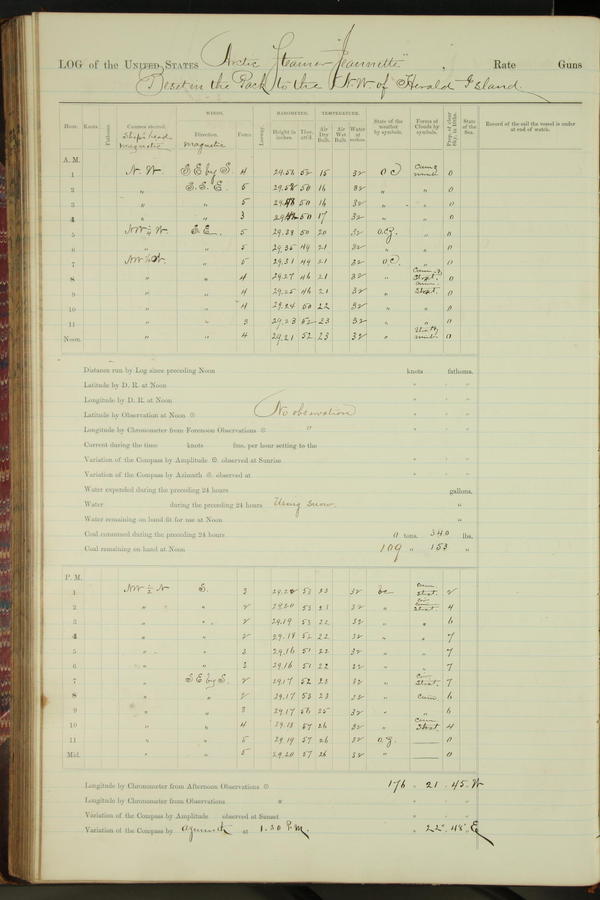 LOG of the UNITED STATES Arctic Steamer "Jeannette" , Rate Guns
Beset in the Pack to the N.W. of Herald Island.
WINDS. BAROMETER. TEMPERATURE.
Hour. Knots. Fathoms. Courses steered. Ship's head magnetic Direction. magnetic Force. Leeway. Height in inches. Ther. att'd. Air Dry Bulb. Air Wet Bulb. Water at State of the weather by symbols. Forms of Clouds by symbols. Prop. of clear Sky, in 10ths. State of the Sea. Record of the sail the vessel is under at end of watch.
A. M.
1 N. W. S E by S. 4 29.56 52 15 32 O C 0
2 " S. S. E. 5 50 16 32 " " 0
3 " " 5 50 16 32 " " 0
4 " " 3 50 17 32 " " 0
5 S E. 5 29.38 50 20 32 " 0
6 " " 5 29.35 49 21 32 " " 0
7 " 5 29.31 49 21 32 O C. " 0
8 " " 4 29.27 46 21 32 " 0
9 " " 4 29.25 46 21 32 " 0
10 " " 4 29.24 50 22 32 " " 0
11 " " 3 29.23 52 23 32 " " 0
Noon. " " 4 29.21 52 23 32 " 0
Distance run by Log since preceding Noon knots fathoms.
Latitude by D. R. at Noon " "
Longitude by D. R. at Noon " "
Latitude by Observation at Noon ☉ No observation " "
Longitude by Chronometer from Forenoon Observations ☉ " " "
Current during the time knots fms. per hour setting to the
Variation of the Compass by Amplitude ☉ observed at Sunrise " "
Variation of the Compass by Azimuth ☉ observed at " "
Water expended during the preceding 24 hours gallons.
Water during the preceding 24 hours Using snow. "
Water remaining on hand fit for use at Noon "
Coal consumed during the preceding 24 hours 0 tons. 340 lbs.
Coal remaining on hand at Noon 109 " 153 "
P. M.
1 NW ½ N S. 3 53 23 32 bc 2
2 " " 2 29.20 53 23 32 " 4
3 " " 2 29.19 53 22 32 " " 6
4 " " 2 29.18 52 22 32 " " 7
5 " " 3 29.16 51 22 32 " " 7
6 " " 3 29.16 51 22 32 " " 7
7 " S E by S. 2 29.17 52 23 32 " 7
8 " " 2 29.17 53 23 32 " Cum. 6
9 " " 3 29.17 56 25 32 " " 6
10 " " 4 29.18 57 26 32 " 4
11 " " 5 29.19 57 26 32 — 0
Mid. " " 5 29.20 57 26 32 " — 0
Longitude by Chronometer from Afternoon Observations ☉ 176 ° 21 ' 45 " W
Longitude by Chronometer from Observations " " "
Variation of the Compass by Amplitude observed at Sunset " "
Variation of the Compass by azimuth at 1.30 P.M. " 22° 48' E